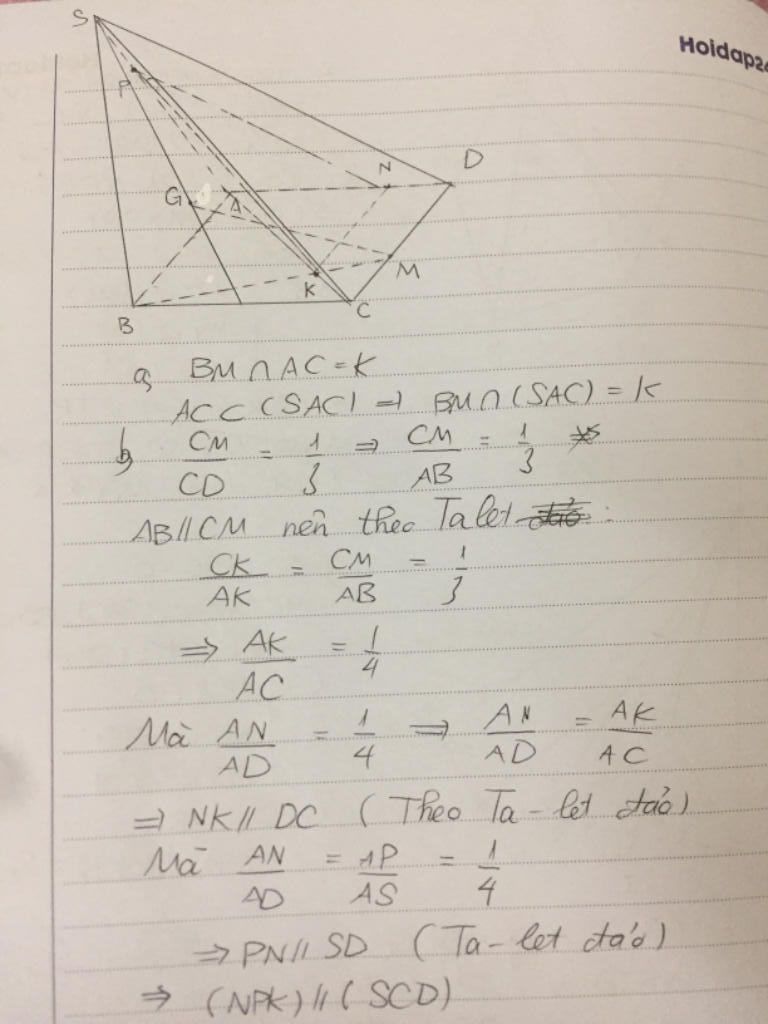 Hoidap24
S
P
N
D
G
A
M
K
B
C
a, BM ∩ AC = K
AC ⊂ (SAC) ⇒ BM ∩ (SAC) = K
b, CM/CD = 1/3 ⇒ CM/AB = 1/3
AB // CM nên theo Talet :
CK/AK = CM/AB = 1/3
⇒ AK/AC = 1/4
Mà AN/AD = 1/4 ⇒ AN/AD = AK/AC
⇒ NK // DC ( Theo Ta-let đảo)
Mà AN/AD = AP/AS = 1/4
⇒ PN // SD ( Ta-let đảo)
⇒ (NPK) // (SCD)